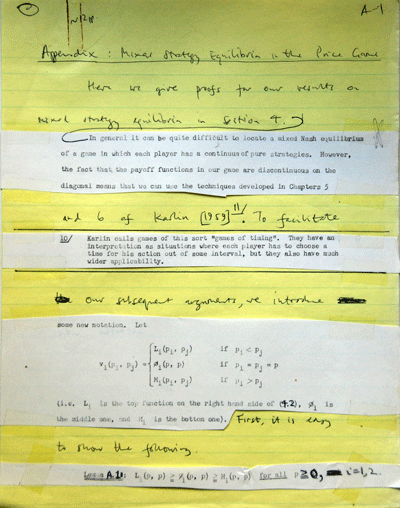 A-1
Appendix : Mixed Strategy Equilibria in the Price Game
Here we give proofs for our results on
mixed strategy equilibria in Section 4.
In general it can be quite difficult to locate a mixed Nash equilibrium
of a game in which each player has a continuum of pure strategies. However,
the fact that the payoff functions in our game are discontinuous on the
diagonal means that we can use the techniques developed in Chapters 5
and 6 of Karlin [1959] 11/. To facilitate
10/ Karlin calls games of this sort "games of timing". They have an
interpretation as situations where each player has to choose a
time for his action out of some interval, but they also have much
wider applicability.
our subsequent arguments, we introduce
some new notation. Let
Li(pi, pj) if pi < pj
vi(pi, pj) = Øi(p, p) if pi = pj = p
Mi(pi, pj) if pi > pj
(i.e. Li is the top function on the right hand side of (4.2), Øi is
the middle one, and Mi is the bottom one). First, it is easy
to show the following.
Lemma A.1: Li(p, p) ≥ Øi(p, p) ≥ Mi(p, p) for all p ≥ 0, i=1,2.